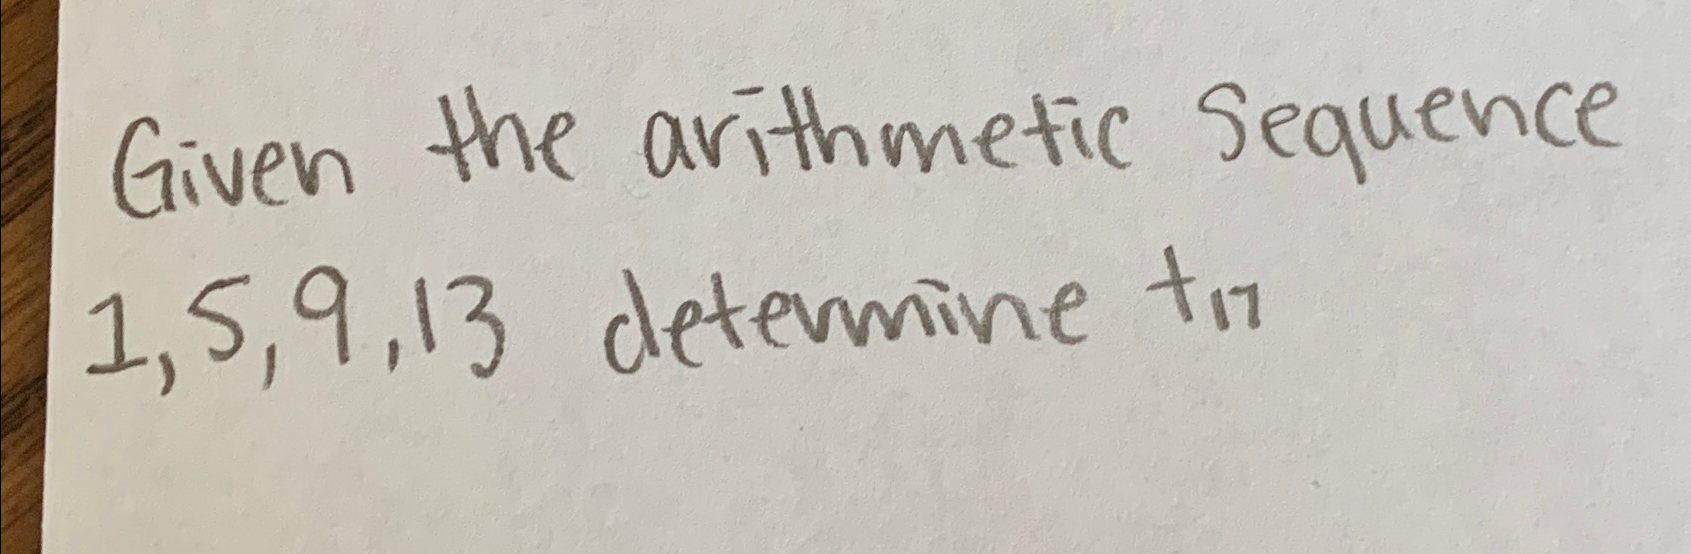 Given the arithmetic sequence
1, 5, 9, 13 determine t₁₇